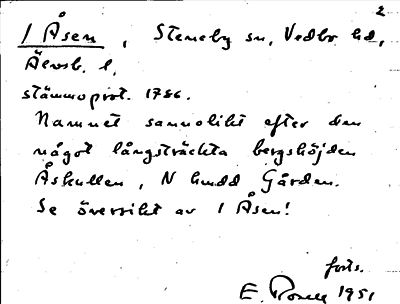 2
1 Åsen, Steneby sn, Vedbo hd,
Älvsb. l.
stämmoprot. 1786.
Namnet sannolikt efter den
något långsträckta bergshöjden
Åskullen, N huvud Gården.
Se översikt av 1 Åsen!
forts.
E. Rosell 1951